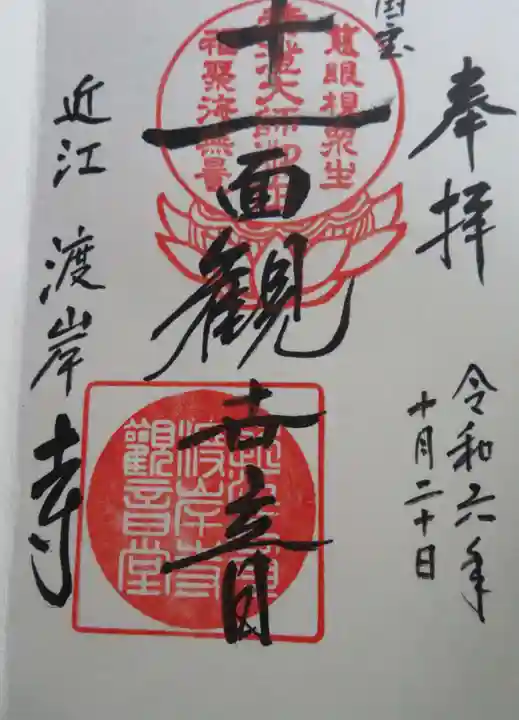 国宝
奉拝
令和六年
十月二十日
十一面観世音
近江 渡岸寺
慈眼視衆生
福聚海無量
渡岸寺
観音堂